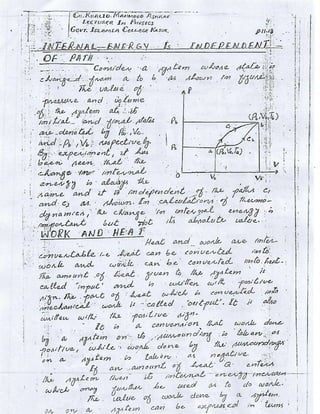 CH. KHALID MAHMOOD ASHRAF
LECTURER IN PHYSICS
GOVT. ISLAMIA COLLEGE KASUR.
INTERNAL ENERGY IS INDEPENDENT
OF PATH
Consider a system whose state is
changed from a to b as shown in figure.
The value of
pressure and volume
of the system at its
initial and final states
are denoted by Pa, Va
and Pb, Vb respectively.
By experiment, it has
been seen that the
change in internal
energy is always the
same and it is independent of the paths C1
and C2 as shown. In calculations of thermo-
dynamics, the change in internal energy is
important but not its absolute value.
WORK AND HEAT
Heat and work are inter-
convertable i.e heat can be converted into
work and work can be converted into heat.
The amount of heat given to the system is
called 'input' and is written with positive
sign. The part of heat which is converted into
mechanical work is called 'output'. It is also
written with the positive sign.
It is a convension that work done
by a system on its surrounding is taken as
positive, while work done by the surroundings
on a system is taken as negative.
If an amount of heat Q enters
the system then its internal energy increases
which may further be used as to do work.
The value of work done by a system
or on a system can be expressed in terms
P
Pb
Pa
C1
C2
b
a
O
Va
Vb
V